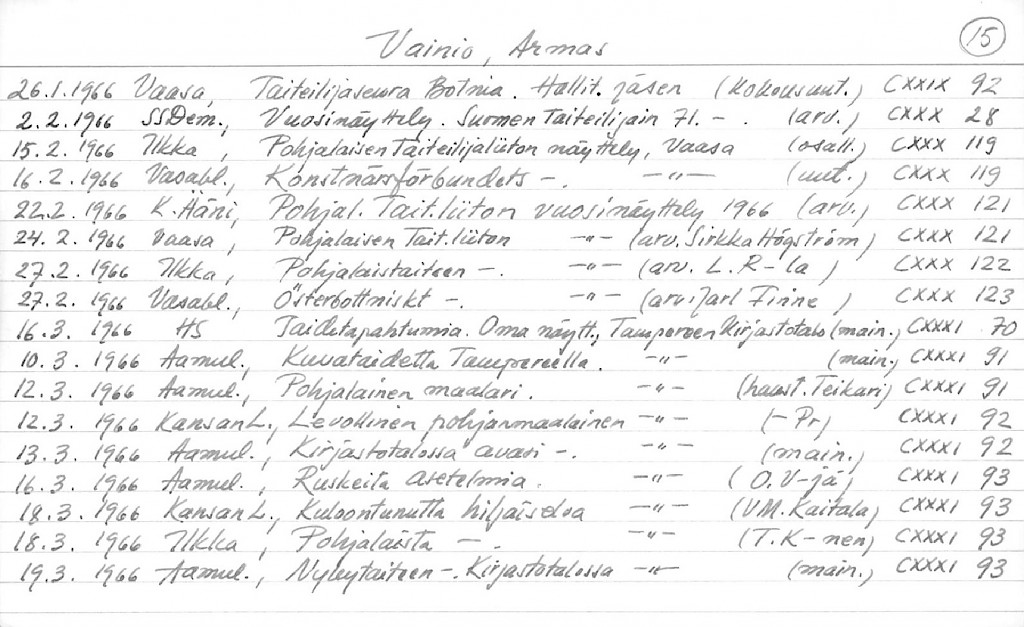 15
Vainio, Armas
26.1.1966 Vaasa, Taiteilijaseura Botnia. Hallit. jäsen (kokousuut.) CXXIX 92
2.2.1966 SSDem., Vuosinäyttely. Suomen Taiteilijain 71. -. (arv.) CXXX 28
15.2.1966 Ilkka, Pohjalaisen Taiteilijaliiton näyttely, Vaasa (osall.) CXXX 119
16.2.1966 Vasabl., Konstnärsförbundets -. -"- (uut.) CXXX 119
22.2.1966 K.Häni, Pohjal. Tait.liiton vuosinäyttely 1966 (arv.) CXXX 121
24.2.1966 Vaasa, Pohjalaisen Tait.liiton -"- (arv. Sirkka Högström) CXXX 121
27.2.1966 Ilkka, Pohjalaistaiteen -. -"- (arv. L.R-la) CXXX 122
27.2.1966 Vasabl., Österbottniskt -. -"- (arv. Jarl Finne) CXXX 123
16.3.1966 HS Taidetapahtumia. Oma näytt., Tampereen Kirjastotalo (main.) CXXXI 70
10.3.1966 Aamul., Kuvataidetta Tampereella. -"- (main.) CXXXI 91
12.3.1966 Aamul., Pohjalainen maalari. -"- (haast. Teikari) CXXXI 91
12.3.1966 Kansan L., Levollinen pohjanmaalainen -"- (-Pr) CXXXI 92
13.3.1966 Aamul., Kirjastotalossa avasi -. -"- (main.) CXXXI 92
16.3.1966 Aamul., Ruskeita asetelmia. -"- (O.V-jä) CXXXI 93
18.3.1966 Kansan L., Kuloontunutta hiljaiseloa -"- (VM. Kaitala) CXXXI 93
18.3.1966 Ilkka, Pohjalaista -. -"- (T.K-nen) CXXXI 93
19.3.1966 Aamul., Nykytaiteen -. Kirjastotalossa -"- (main.) CXXXI 93